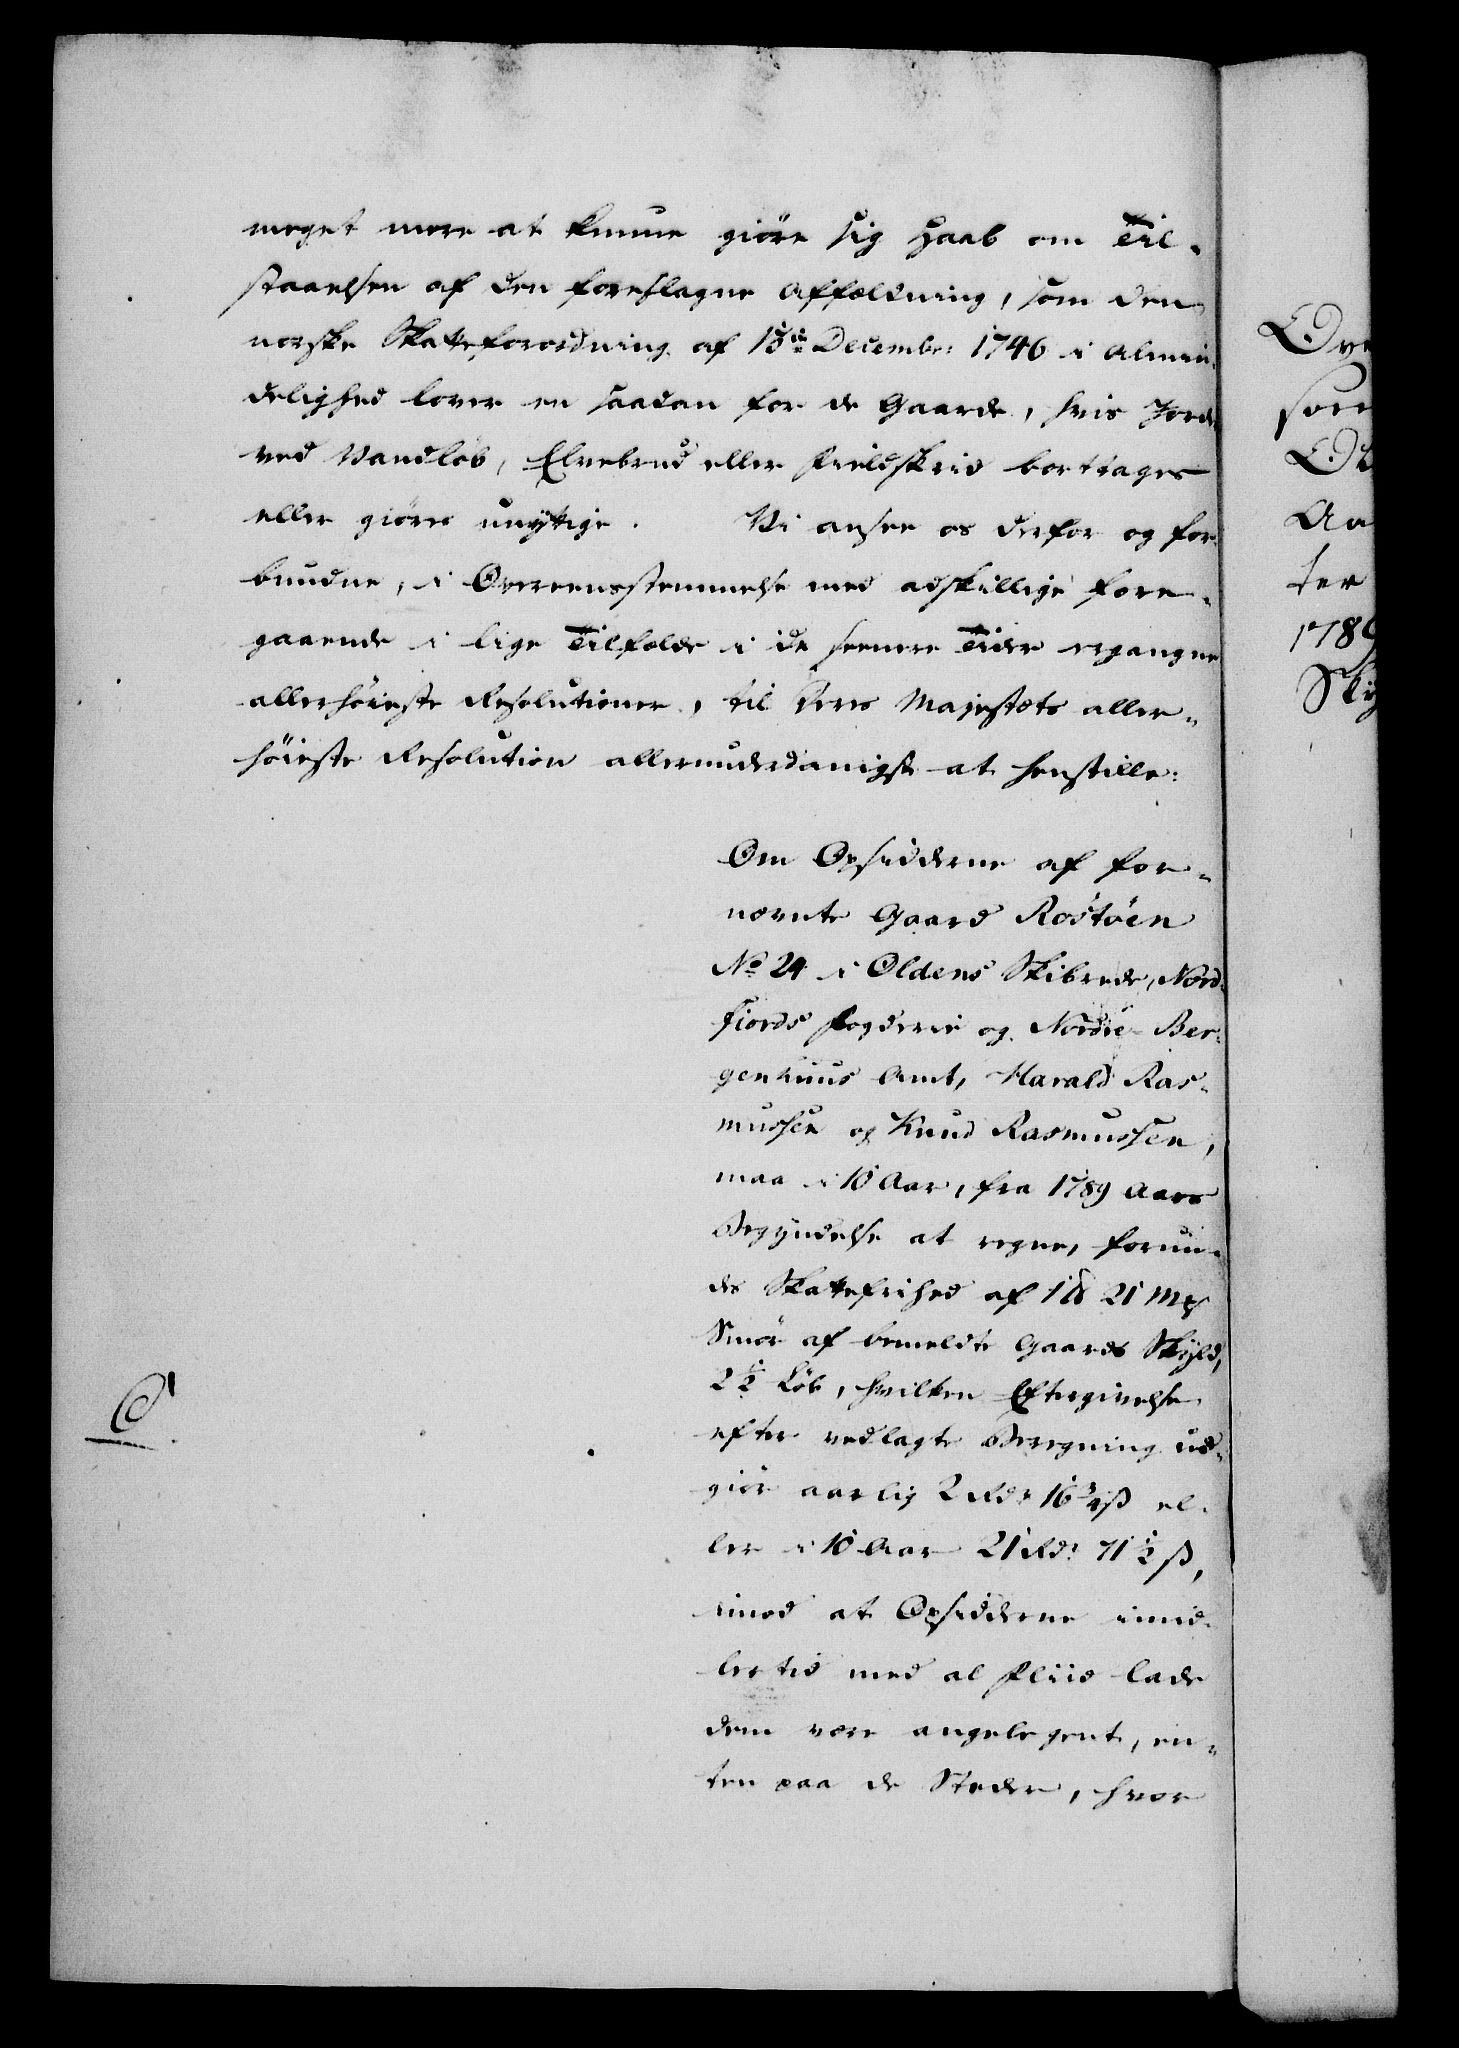 meget mere at kunne giöre sig Haab om Til-
staaelsen af den foreslagne Affældning, som den
norske Skatteforordning af 15de December 1746 i Almin-
delighed lover en saadan for de Gaarde, hvis Jorde
ved Vandløb, Elvebrud eller Fieldskrid borttages
eller giöres unyttige. Vi ansee os derfor og for-
bundne, i Overeensstemmelse med adskillige fore-
gaaende i lige Tilfælde i de seenere Tider ergangne
allerhöieste Resolutioner, til Deres Majestæts aller-
höieste Resolution allerunderdanigst at henstille:
Om Opsidderne af for-
nævnte Gaard Rostöen
No 24 i Oldens Skibrede, Nord-
fiords Fogderie og Nordre Ber-
genhuus Amt, Harald Ras-
mussen og Knud Rasmussen,
maa i 10 Aar, fra 1789 Aars
Begyndelse at regne, forun-
des Skattefrihed af 1 21 Mrk
Smör af bemeldte Gaards Skyld,
2 1/2 Løb, hvilken Eftergivelse
efter vedlagte Beregning ud-
C
giör aarlig 2 Rdr 16 3/4 ß el-
ler i 10 Aar 21 Rdr 71 1/2 ß,
imod at Opsidderne imid-
lertid med al Fliid lade
dem være angelegent, en-
ten paa de Steder, hvor
Ove
som
Aa
ter
1789
Sky